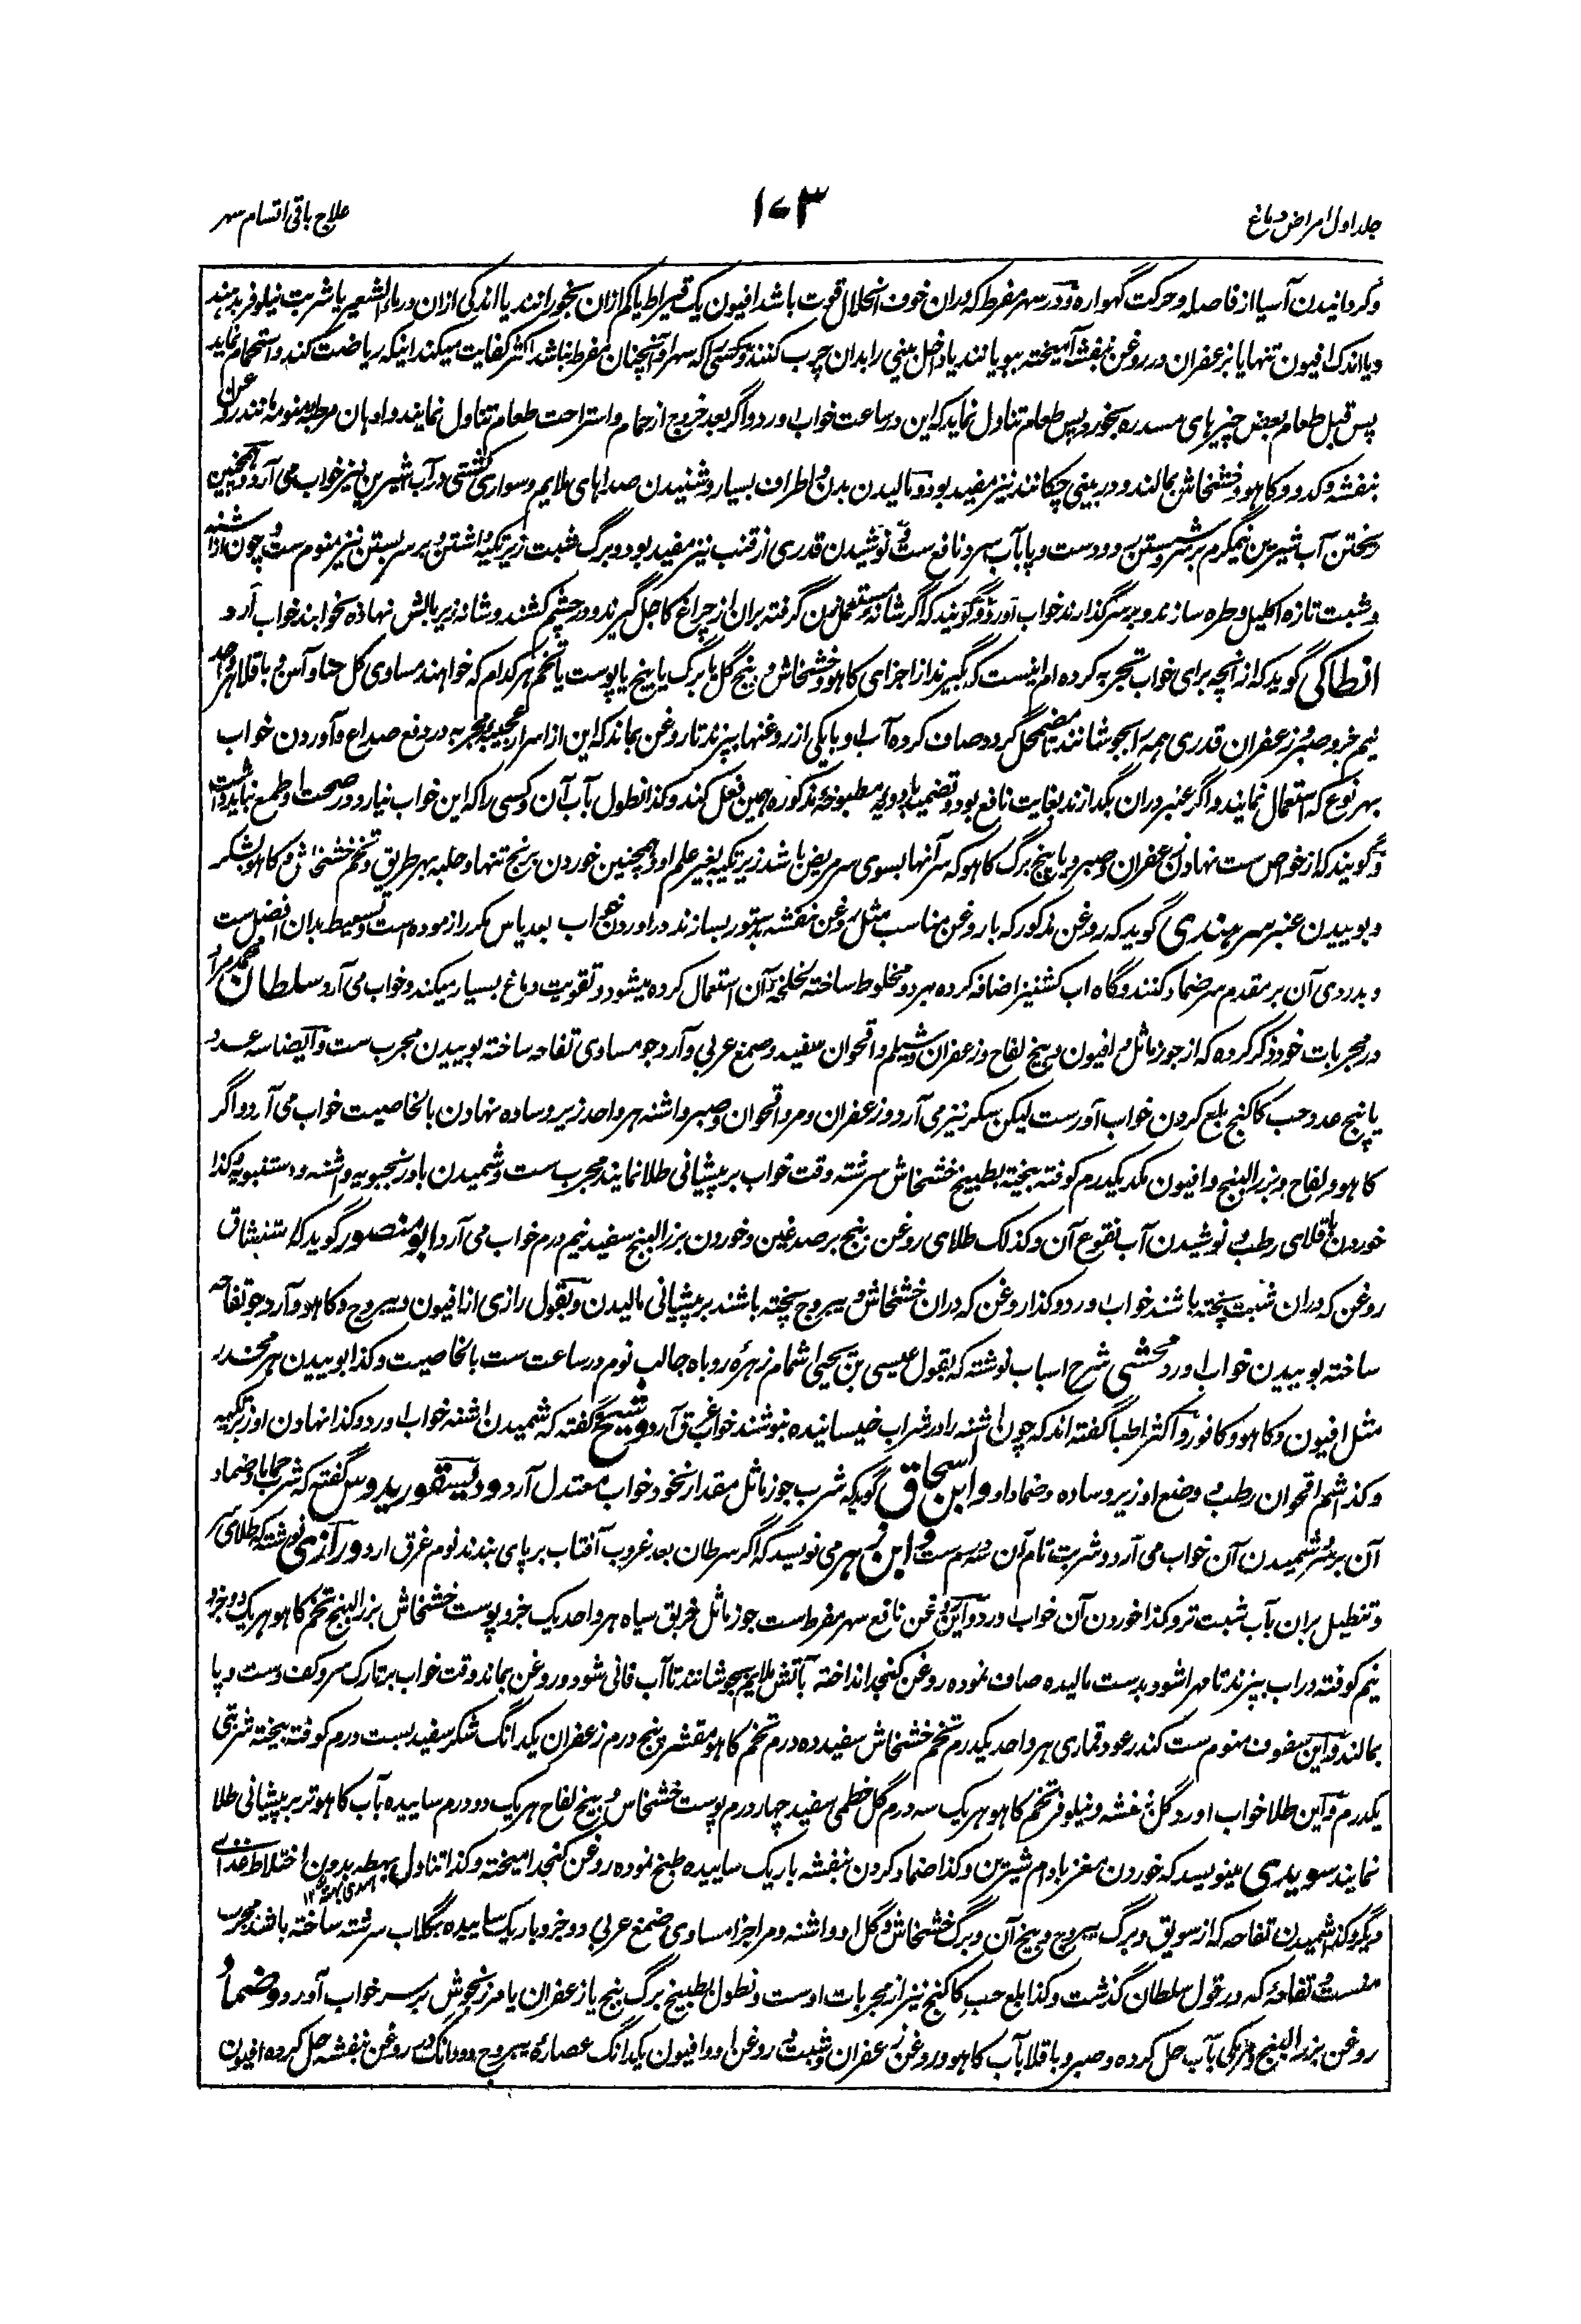 جلد اول امراض دماغ
۱۰۳
علاج باقی اقسام سهر
و گردانیدن آسیا از فاصله و حرکت گهواره و در سهر مفرط که دران خوف انحلال قوت باشد افیون یک قیراط یا کم ازان بخورانند یا اندکی ازان در ماء الشعیر یا شربت نیلوفر بدهند
و یا اندک افیون تنها یا بزعفران در روغن بنفشه آمیخته ببویانند یا داخل بینی را بدان چرب کنند و کسی که سهر او آنچنان مفرط نباشد اکثر کفایت میکند اینکه ریاضت کند و استحمام نماید
پس قبل طعام بعض چیزهای مسدره بخورد پس طعام تناول نماید که این در ساعت خواب آورد و اگر بعد خروج از حمام و استراحت طعام تناول نمایند و ادهان مرطبه منومه مانند روغن
بنفشه و کدو و کاهو و خشخاش بمالند و در بینی چکانند نیز مفید بود و مالیدن بدن و اطراف بسیار و شنیدن صداهای ملایم و سواری کشتی در آب شیرین نیز خواب می آرد و همچنین
ریختن آب شیرین نیمگرم بر سر و شستن رو و دست و پا بآب سرد نافع ست و نوشیدن قدری از قنب نیز مفید بود و برگ شبت زیر تکیه داشتن و بر سر بستن نیز منوم ست و چون از اشنه
و شبت تازه اکلیل و طره سازند و بر سر گذارند خواب آورد و گویند که اگر شانه مستعمل زن گرفته بران از چراغ کاجل گیرند و در چشم کشند و شانه زیر بالش نهاده بخوابند خواب آرد
انطاکی گوید که از آنچه برای خواب تجربه کرده ام اینست که بگیرند از اجزای کاهو و خشخاش و بنج گل یا برگ یا بیخ یا پوست یا تخم هر کدام که خواهند مساوی گل حنا و آس و باقلا هر واحد
نیم جزو صبر و زعفران قدری همه را بجوشانند تا مضمحل گردد و صاف کرده آب او با یکی از روغنها بپزند تا روغن بماند که این از اسرار عجیبه مجربه در دفع صداع و آوردن خواب
بهر نوع که استعمال نمایند و اگر عنبر دران بگدازند بغایت نافع بود و تضمید بادویه مطبوخه مذکوره همین فعل کند و کذا نطول بآب آن و کسی را که این خواب نیارد در صحت او طمع نباید داشت
و گویند که از خواص ست نهادن زعفران و صبر و یا پنج برگ کاهو که سر آنها بسوی سر مریض باشد زیر تکیه بغیر علم او و همچنین خوردن برنج تنها و حلبه بهر طریق و تخم خشخاش و کاهو بشکر
و بوییدن عنبر سرهندی گوید که روغن مذکور که با روغن مناسب مثل روغن بنفشه بدستور بسازند در آوردن خواب بعد یاس مکرر آزموده است و تسعیط بدان افضل ست
و بدردی آن بر مقدم سر ضماد کنند و گاه آب کشنیز اضافه کرده هر دو مخلوط ساخته لخلخه آن استعمال کرده میشود و تقویت دماغ بسیار میکند و خواب می آرد سلطان محمد مراد
در مجربات خود ذکر کرده که از جوز ماثل و افیون و بیخ لفاح و زعفران و شیلم و اقحوان سفید و صمغ عربی و آرد جو مساوی تفاحه ساخته بوییدن مجرب ست و ایضا سه عدد
یا پنج عدد حب کاکنج بلع کردن خواب آورست لیکن سکر نیز می آرد و زعفران و مر و اقحوان و صبر و اشنه هر واحد زیر وساده نهادن بالخاصیت خواب می آرد و اگر
کاهو و لفاح و بزر البنج و افیون یکدرم کوفته بیخته بطبیخ خشخاش سرشته وقت خواب بر پیشانی طلا نمایند مجرب ست و شمیدن بادرنجبویه و اشنه و دستنبویه و کذا
خوردن باقلای رطب و نوشیدن آب نقوع آن و کذلک طلای روغن بنج بر صدغین و خوردن بزر البنج سفید نیم درم خواب می آرد ابو منصور گوید که استنشاق
روغن که دران شبت پخته باشند خواب آورد و کذا روغن که دران خشخاش و یبروج پخته باشند بر پیشانی مالیدن و بقول رازی از افیون و یبروج و کاهو و آرد جو تفاحه
ساخته بوییدن خواب آورد و محشی شرح اسباب نوشته که بقول عیسی بن یحیی اشمام زهره روباه جالب نوم در ساعت ست بالخاصیت و کذا بوییدن هر مخدر
مثل افیون و کاهو و کافور و اکثر اطبا گفته اند که چون اشنه را در شراب خیسانیده بنوشند خواب غرق آرد و شیخ گفته که شمیدن اشنه خواب آورد و کذا نهادن او زیر تکیه
و کذا شم اقحوان رطب و وضع او زیر وساده و ضماد او و ابن اسحاق گوید که شرب جوز ماثل مقدار نخود خواب معتدل آرد و دیسقوریدوس گفته که شرب حماما و ضماد
آن بر سر و شمیدن آن خواب می آرد و شربت تام آن سه درم ست و ابن زهر می نویسد که اگر سرطان بعد غروب آفتاب بر پای بندند نوم غرق آرد و رازی نوشته که طلای سر
و تنطیل بران بآب شبت تر و کذا خوردن آن خواب آورد و این روغن نافع سهر مفرط ست جوز ماثل خربق سیاه هر واحد یک جزو پوست خشخاش بزر البنج تخم کاهو هر یک دو جزو
نیم کوفته در آب بپزند تا مهرا شود بدست مالیده صاف نموده روغن کنجد انداخته بآتش ملایم بجوشانند تا آب فانی شود و روغن بماند وقت خواب بر تارک سر و کف دست و پا
بمالند و این سفوف منوم ست کندر عود قماری هر واحد یکدرم تخم خشخاش سفید ده درم تخم کاهو مقشر پنج درم زعفران یکدانگ شکر سفید بست درم کوفته بیخته شربتی
یکدرم و این طلا خواب آورد گل بنفشه و نیلوفر تخم کاهو هر یک سه درم گل خطمی سفید چهار درم پوست خشخاش و بیخ لفاح هر یک دو درم ساییده بآب کاهو تر بر پیشانی طلا
نمایند سویدی مینویسد که خوردن مغز بادام شیرین و کذا ضماد کردن بنفشه باریک ساییده طبخ نموده روغن کنجد آمیخته و کذا تناول بهطه بدون اختلاط غذای
دیگر و کذا شمیدن تفاحه که از سویق و برگ یبروج و بیخ آن و برگ خشخاش و گل او و اشنه و مر اجزا مساوی صمغ عربی دو جزو باریک ساییده بگلاب سرشته ساخته باشند مجرب
منست و تفاحه که در قول سلطان گذشت و کذا بلع حب کاکنج نیز از مجربات اوست و نطول بطبیخ برگ بنج یا زعفران یا مرزنجوش بر سر خواب آورد و ضماد
روغن بزر البنج و بآب حل کرده و صبر و باقلا بآب کاهو و روغن زعفران و شبت و روغن او و افیون یکدانگ عصاره یبروج دو دانگ در روغن بنفشه حل کرده افیون